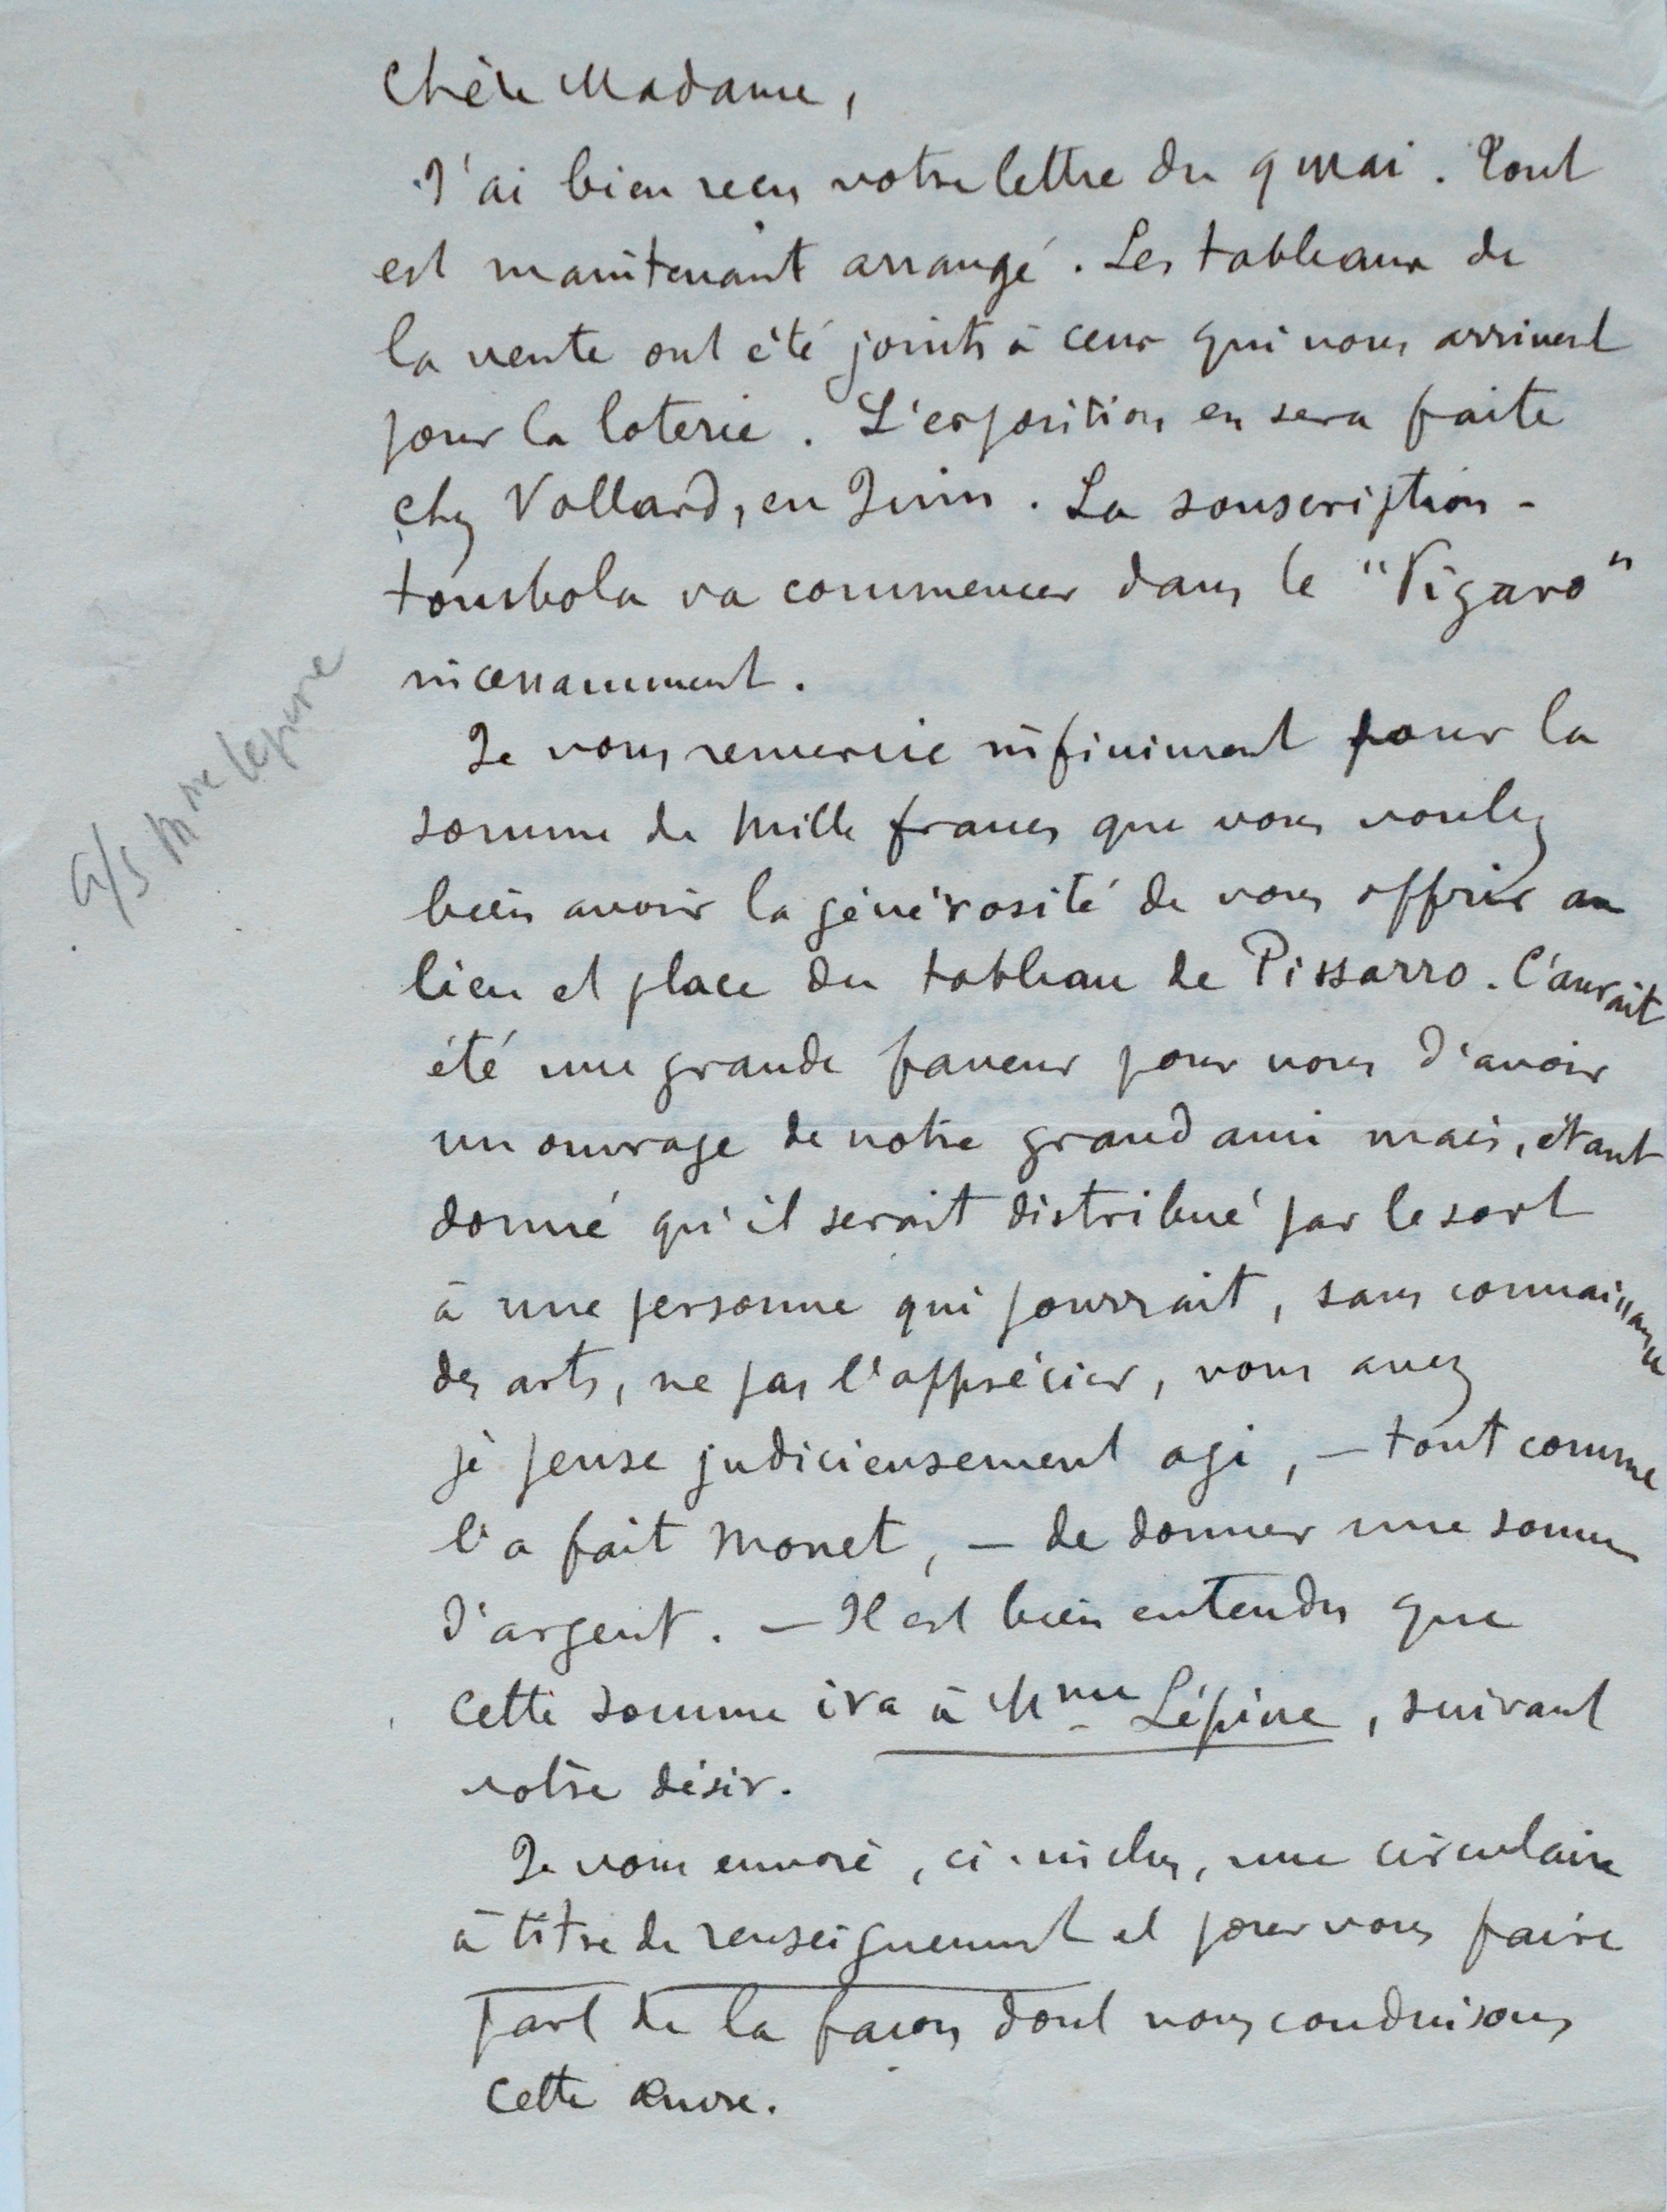 Chère Madame,
J'ai bien reçu votre lettre du 9 mai. Tout
est maintenant arrangé. Les tableaux de
la vente ont été joints à ceux qui nous arrivent
pour la loterie. L'exposition en sera faite
chez Vollard, en Juin. La souscription-
tombola va commencer dans le "Figaro"
incessamment.
Je vous remercie infiniment pour la
somme de mille francs que vous voulez
bien avoir la générosité de nous offrir au
lieu et place du tableau de Pissarro. C'aurait
été une grande faveur pour nous d'avoir
un ouvrage de notre grand ami mais, étant
donné qu'il serait distribué par le sort
à une personne qui pourrait, sans connaissance
des arts, ne pas l'apprécier, vous avez
je pense judicieusement agi, — tout comme
l'a fait Monet, — de donner une somme
d'argent. — Il est bien entendu que
cette somme ira à Mme Lépine, suivant
votre désir.
Je vous envoie, ci-inclus, une circulaire
à titre de renseignement et pour vous faire
part de la façon dont nous conduisons
cette œuvre.
a/s Mme Lépine